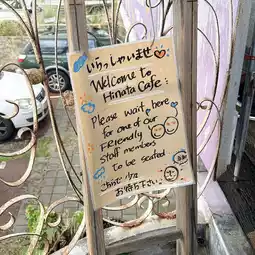 いらっしゃいませ
Welcome to
Hinata Cafe
Please wait here
for one of our
FRIENDLY
staff members
to be seated
お待ち下さい